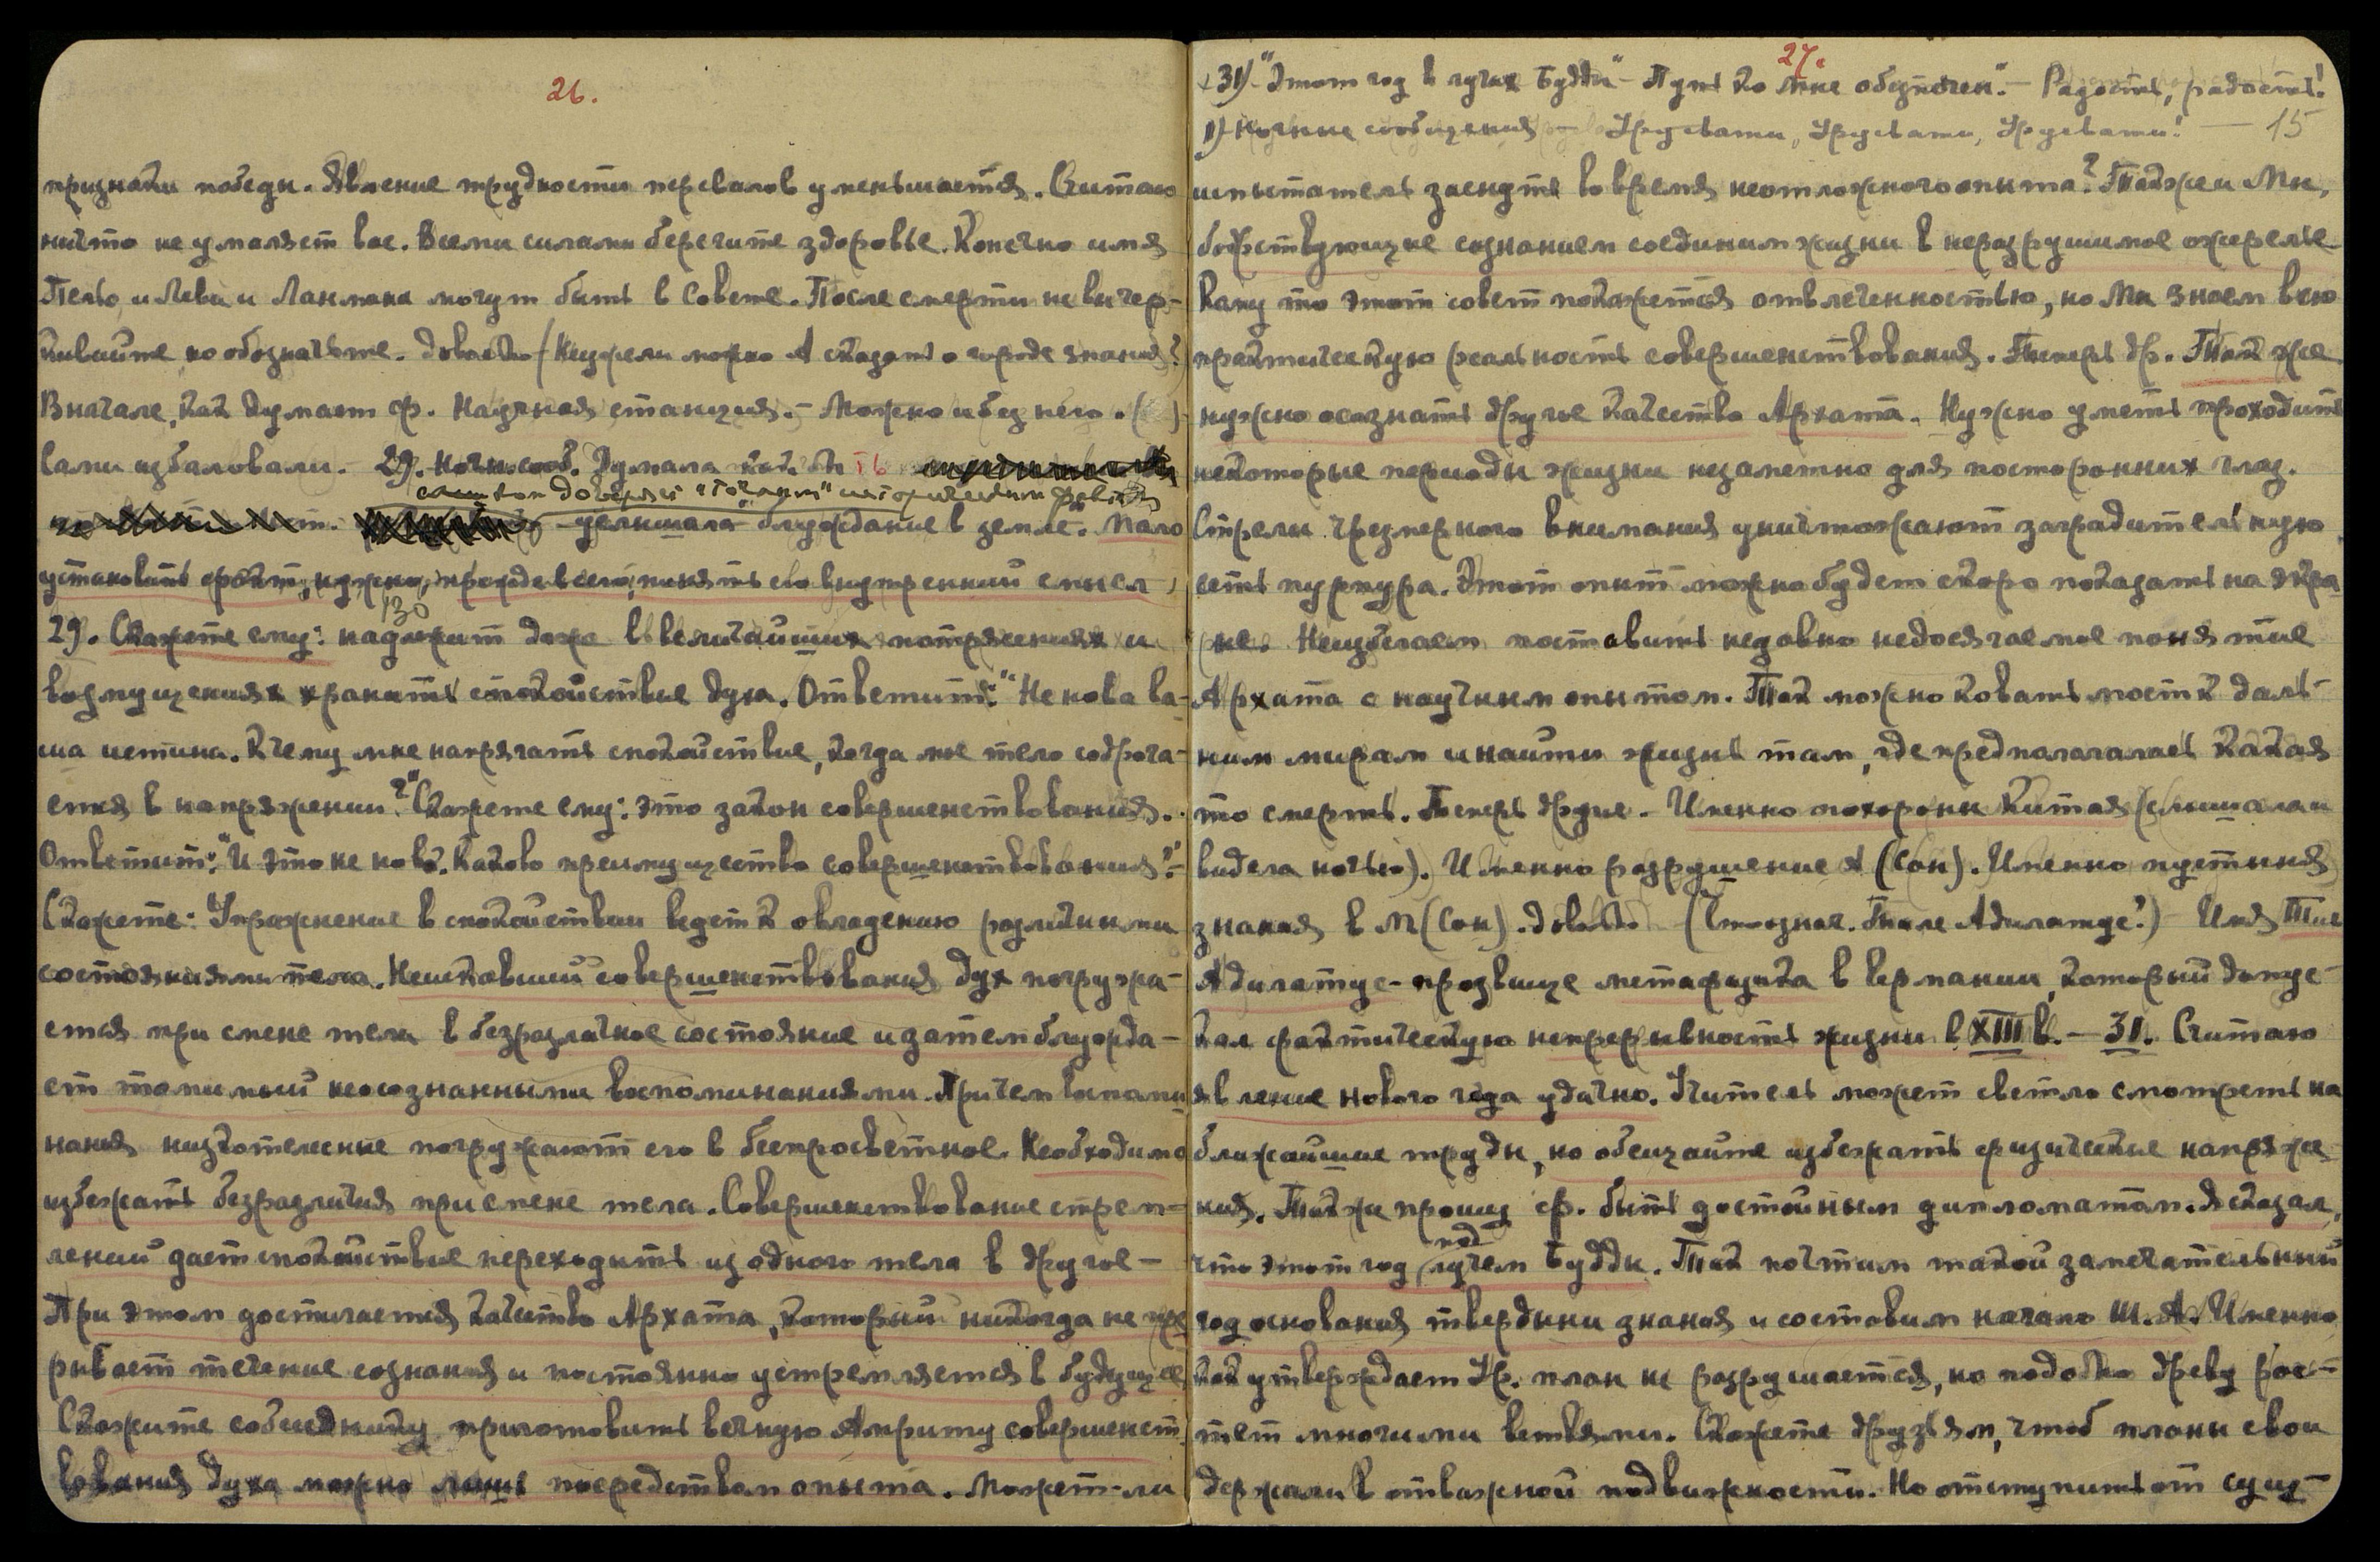 26.
признаки победы. Явление трудности перевалов уменьшается. Считаю
ничто не умаляет вас. Всеми силами берегите здоровье. Конечно имя
Пельо, и Леви и Ланмана могут быть в Совете. После смерти не вычер-
кивайте, но обозначьте. Довольно (Неужели можно А сказать о городе знания?
Вначале, как думает Ф. Научная станция. - Можно и без него. ( )
сами избаловали. - 29. Ночн. сооб. Думала
доверял "точным" историческим
услышала - блуждание в земле. Мало
установить факт, нужно, прежде всего, понять его внутренний смысл,
130
29. Скажете ему: надлежит даже в величайших потрясениях и
возмущениях хранить спокойствие духа. Ответит: "Не нова ва-
ша истина. К чему мне напрягать спокойствие, когда мое тело содрога-
ется в напряжении?" Скажете ему: это закон совершенствования.
Ответит: "И это не ново. Каково преимущество совершенствования?" -
Скажете: Упражнение в спокойствии ведет к овладению различными
состояниями тела. Неискавший совершенствования дух погружа-
ется при смене тела в безразличное состояние и затем блужда-
ет томимый неосознанными воспоминаниями. Причем воспоми-
нания низкотелесные погружают его в беспросветное. Необходимо
избежать безразличия при смене тела. Совершенствование стрем-
лений дает спокойствие переходить из одного тела в другое -
При этом достигается качество Архата, который никогда не пре-
рывает течение сознания и постоянно устремляется в будущее
Скажите собеседнику приготовить вечную Амриту совершенст-
вования духа можно лишь посредством опыта. Может-ли
27.
+31) "Этот год в лучах Будды" - Путь ко Мне обозначен." - Радость, радость!
1) Ночные сообщения - Урусвати, Урусвати, Урусвати! - 15
испытатель заснуть во время неотложного опыта? Также и Мы,
бодрствующие сознанием соединим жизни в неразрушимое ожерелье.
Кому то этот совет покажется отвлеченностью, но Мы знаем всю
практическую реальность совершенствования. Теперь др. Так же
нужно осознать другое качество Архата. Нужно уметь проходить
некоторые периоды жизни незаметно для посторонних глаз.
Стрелы чрезмерного внимания уничтожают заградительную
сеть пурпура. Этот опыт можно будет скоро показать на экра-
не. Неизбежем поставить недавно недосягаемое понятие
Архата с научным опытом. Так можно ковать мост к даль-
ним мирам и найти жизнь там, где предполагалась какая
то смерть. Теперь другие. - Именно похороны Китая (слышала и
видела ночью). Именно разрушение А (Сон). Именно пустыня
знания в М (Сон). Довольно (Что знач. Тиле Адилатус?) - Имя Тиле
Адилатус - прозвище метафизика в Германии, который допус-
кал фактическую непрерывность жизни в XIII в. - 31. Считаю
явление нового года удачно. Учитель может светло смотреть на
ближайшие труды, но обещайте избежать физические напряже-
ния. Также прошу ф. быть достойным дипломатом. Я сказал,
что этот год под лучем Будды. Так почтим такой замечательный
год основания твердыни знания и составим начало Ш. А. Именно
как утверждает Ур. план не разрушается, но подобно древу рас-
тет многими ветвями. Скажете друзьям, чтоб планы свои
держали в отважной подвижности. Но отступить от сущ-